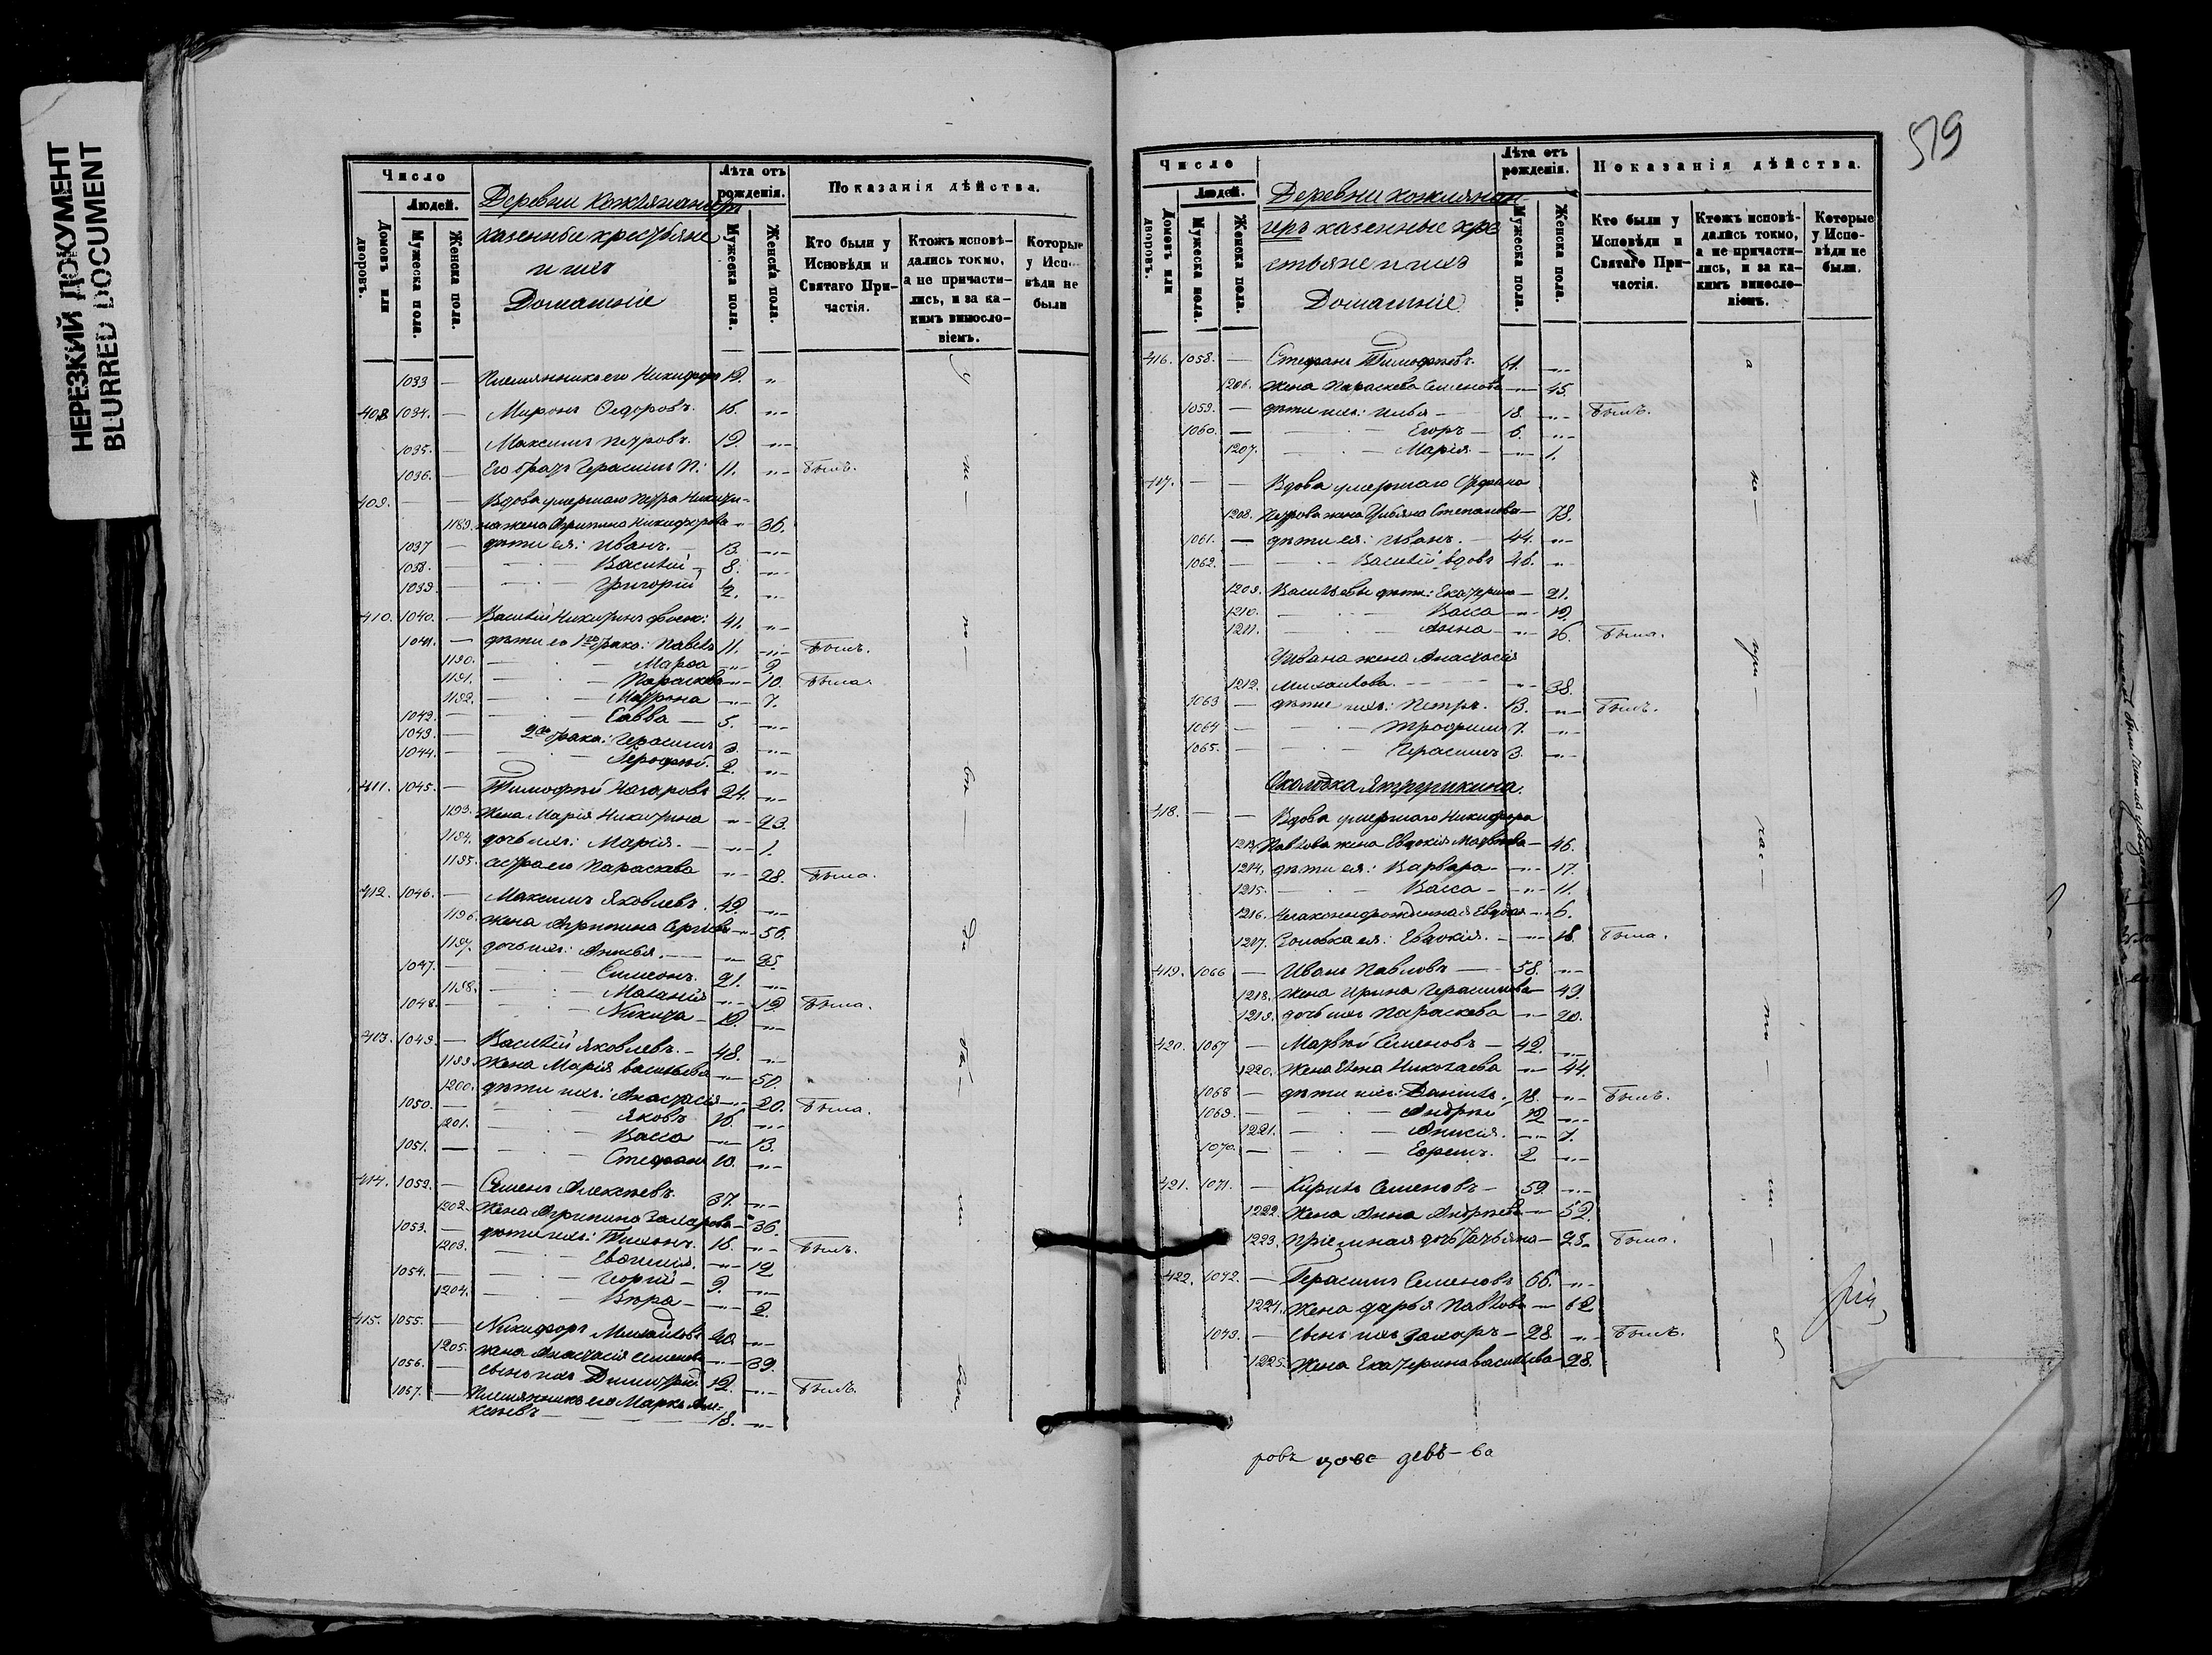 НЕРЕЗКИЙ ДОКУМЕНТ
BLURRED DOCUMENT
Число
Людей.
Домовъ или дворовъ.
Мужеска пола.
Женска пола.
Деревни
казенные крестьяне
и ихъ
Домашніе
Лѣта отъ рожденія.
Мужеска пола.
Женска пола.
Показанія дѣйства.
Кто были у Исповѣди и Святаго Причастія.
Ктожъ исповѣдались токмо, а не причастились, и за какимъ винословіемъ.
Которые у Исповѣди не были
1033 — Племянникъ его Никифоръ 19. „
408 1034. — Миронъ Ѳедоровъ. 16. „
1035. — Максимъ Петровъ. 19 „
1036. — Его братъ Герасимъ П: 11. „ Былъ.
409. — — Вдова умершаго Петра Никити-
1189. на жена Агрипина Никифорова „ 36.
1037 — дѣти ея: Иванъ. 13. „
1038. — Василій 8. „
1039 — Григорій „
410. 1040. — Василій Никитинъ 41. „
1041. — дѣти его Павелъ 11. „ Былъ.
1190. Марѳа „ 9.
1191. Параскева „ 10. Была.
1192. Матрона „ 7.
1042. — Савва — 5. „
1043. — брака: Герасимъ 3. „
1044. — 2. „
411. 1045. — Тимофѣй Назаровъ 24. „
1193. Жена Марія Никитина „ 23.
1194. дочь ихъ: Марія. „ 1.
1195. сестра его Параскева „ 28. Была.
412. 1046. — Максимъ Яковлевъ. 49. „
1196. Жена Агрипина „ 56.
1197. дочь ихъ: „ 25.
1047. — Симеонъ. 21. „
1198. Маланія „ 19. Была.
1048. — Никита 12. „
413. 1049. — Василій Яковлевъ. 48. „
1199. Жена Марія Васильева „ 50.
1200. дѣти ихъ: Анастасія „ 20. Была.
1050. — Яковъ 16. „
1201. Васса „ 13.
1051. — Стефанъ 10. „
414. 1052. — Семенъ Алексѣевъ. 37. „
1202. Жена Агрипина Захарова „ 36.
1053. — дѣти ихъ: Тихонъ. 16. „ Былъ.
1203. Евѳимія. „ 12
1054. — Георгій 9. „
1204. Вѣра „ 2.
415. 1055. — Никифоръ Михайловъ 40. „
1205. жена Анастасія Семенова „ 39.
1056. — сынъ ихъ Димитрій 12. „
1057. — Племянникъ его Маркъ Але-
ксѣевъ 18. „ Былъ.
519
Число
Людей.
Домовъ или дворовъ.
Мужеска пола.
Женска пола.
Деревни
казенные кре
стьяне и ихъ
Домашніе
Лѣта отъ рожденія.
Мужеска пола.
Женска пола.
Показанія дѣйства.
Кто были у Исповѣди и Святаго Причастія.
Ктожъ исповѣдались токмо, а не причастились, и за какимъ винословіемъ.
Которые у Исповѣди не были.
416. 1058. — Стефанъ Тимофѣевъ. 51. „
1206. Жена Параскева Семенова „ 45.
1059. — дѣти ихъ: Илья 18. „ Былъ.
1060. — Егоръ 6. „
1207. Марія „ 1.
417. — — Вдова умершаго
1208. Петрова жена Ульяна Степанова — 78.
1061. — дѣти ея: Иванъ. 44. „
1062. — Василій вдовъ 46. „
1209. Васильевы дѣти: Екатерина — 21.
1210. Васса „ 19.
1211. Анна „ 16. Была.
Ивана жена Анастасія
1212. Михайлова. „ 38.
1063 — дѣти ихъ: Петръ. 13. „ Былъ.
1064 — Трофимъ 7. „
1065. — Герасимъ 3. „
Околодка
418. — — Вдова умершаго Никифора
1213. Павлова жена Евдокія Матвѣева — 46.
1214. дѣти ея: Варвара „ 17.
1215. Васса „ 11.
1216. Незаконнорожденная „ 6.
1217. Золовка ея: Евдокія. „ Была.
419. 1066 — Иванъ Павловъ — 58. „
1218. Жена Ирина Герасимова — 49.
1219. дочь ихъ Параскева „ 20.
420. 1067 — Матвѣй Семеновъ — 42. „
1220. Жена Елена Николаева „ 44.
1068 — дѣти ихъ: Даніилъ. 18. „ Былъ.
1069. — Андрей 12 „
1221. Анисія. „ 7.
1070. — Ефремъ. 2 „
421. 1071. — Кирилъ Семеновъ — 59. „
1222. Жена Анна Андрѣева — 52.
1223. Пріемная дочь Татьяна — 23. Была.
422. 1072. — Герасимъ Семеновъ 66. „
1224. Жена Дарья Павлова — 62
1073. — сынъ ихъ Захаръ — 28. „ Былъ.
1225. Жена Екатерина Васильева 28.